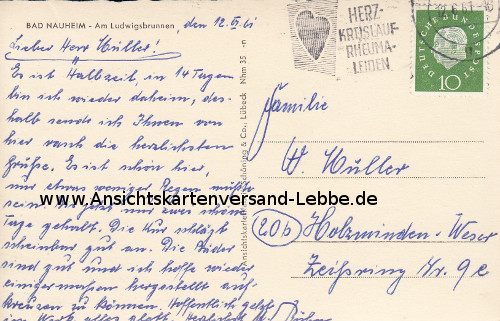 BAD NAUHEIM - Am Ludwigsbrunnen, den 12. VI. 61
Lieber Herr Müller!
Es ist Halbzeit, in 14 Tagen
bin ich wieder daheim, des-
halb send ich Ihnen von
hier noch die herzlichsten
Grüße. Es ist schön hier,
nur etwas weniger Regen müßte
sein. jetzt nur zwei schöne
Tage gehabt. Die Kur schlägt
scheinbar gut an. Die Bäder
sind gut und ich hoffe wieder
einigermaßen hergestellt auf-
kreuzen zu können. Hoffentlich geht
im Werk alles glatt. Herzlichst
Ansichtskarten Schöning & Co., Lübeck Nhm 35 -n
HERZ-
KREISLAUF-
RHEUMA-
LEIDEN
DEUTSCHE BUNDESPOST
10
Familie
W. Müller
(20b) Holzminden-Weser
Zeißring Nr. 9c
www.Ansichtskartenversand-Lebbe.de